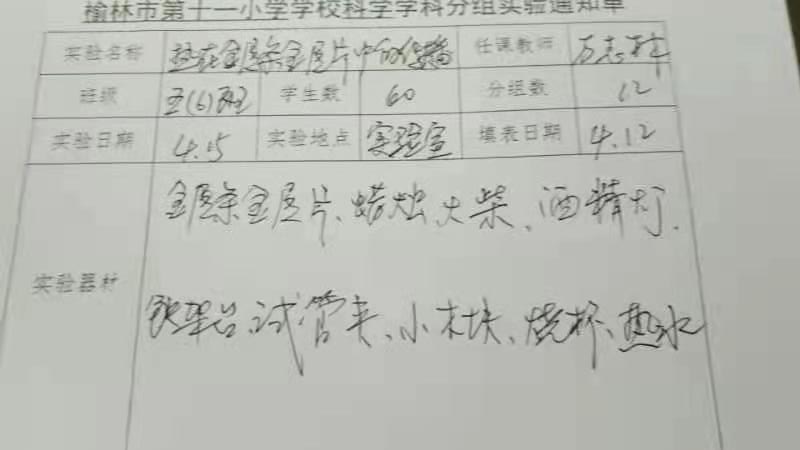 榆林市第十一小学学校科学学科分组实验通知单
实验名称 热在金属条金属片中的传播 任课教师
班级 五(6)班 学生数 60 分组数 12
实验日期 4.15 实验地点 实验室 填表日期 4.12
实验器材
金属条金属片、蜡烛、火柴、酒精灯、
铁架台、试管夹、小木块、烧杯、热水